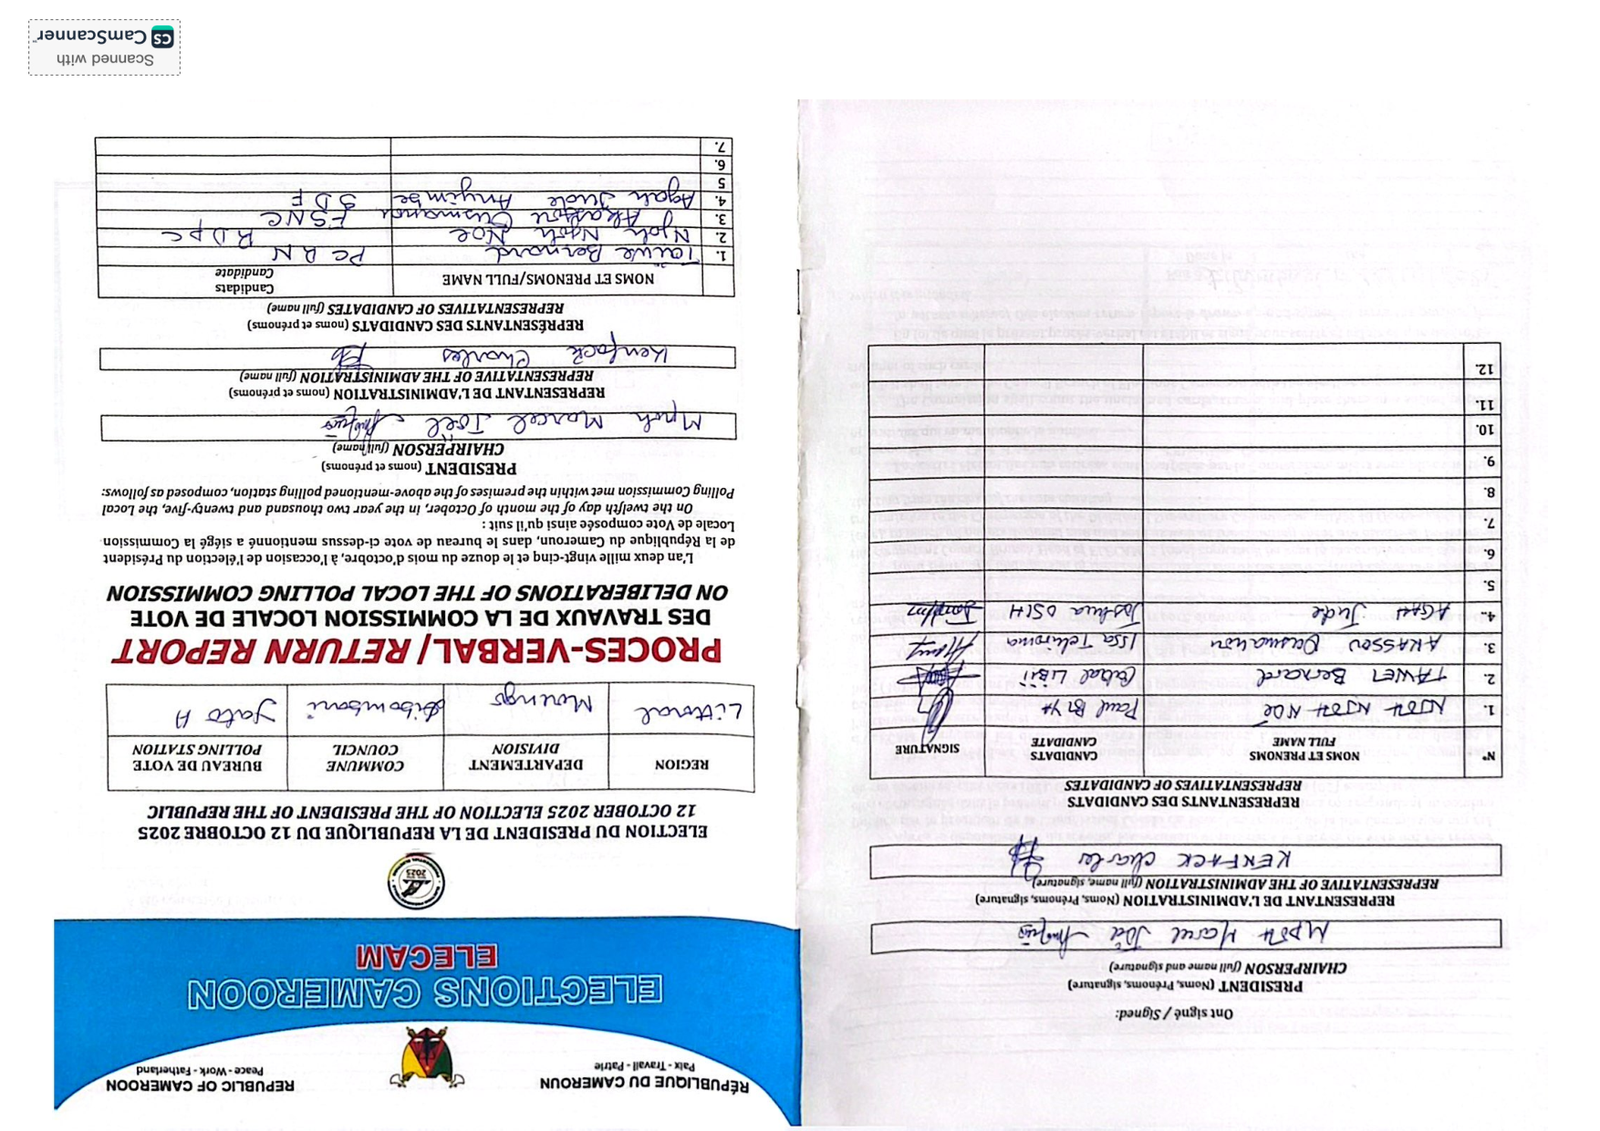 RÉPUBLIQUE DU CAMEROUN
Paix - Travail - Patrie
REPUBLIC OF CAMEROON
Peace - Work - Fatherland
ELECTIONS CAMEROON
ELECAM
ELECTION DU PRESIDENT DE LA REPUBLIQUE DU 12 OCTOBRE 2025
12 OCTOBER 2025 ELECTION OF THE PRESIDENT OF THE REPUBLIC
REGION
DEPARTEMENT
DIVISION
COMMUNE
COUNCIL
BUREAU DE VOTE
POLLING STATION
Littoral
Moungo
Dibombari
Yato A
PROCES-VERBAL/ RETURN REPORT
DES TRAVAUX DE LA COMMISSION LOCALE DE VOTE
ON DELIBERATIONS OF THE LOCAL POLLING COMMISSION
L'an deux mille vingt-cinq et le douze du mois d'octobre, à l'occasion de l'élection du Président
de la République du Cameroun, dans le bureau de vote ci-dessus mentionné a siégé la Commission
Locale de Vote composée ainsi qu'il suit :
On the twelfth day of the month of October, in the year two thousand and twenty-five, the Local
Polling Commission met within the premises of the above-mentioned polling station, composed as follows:
PRESIDENT (noms et prénoms)
CHAIRPERSON (full name)
Mpoh Marcel Joël
REPRESENTANT DE L'ADMINISTRATION (noms et prénoms)
REPRESENTATIVE OF THE ADMINISTRATION (full name)
Kenfack Charles
REPRÉSENTANTS DES CANDIDATS (noms et prénoms)
REPRESENTATIVES OF CANDIDATES (full name)
NOMS ET PRENOMS/FULL NAME
Candidats
Candidate
1. Taiwe Bernard PCRN
2. Njoh Njoh Noe RDPC
3. Akassou Ousmanou FSNC
4. Agah Jude Anyimbe SDF
5
6.
7.
Ont signé / Signed:
PRESIDENT (Noms, Prénoms, signature)
CHAIRPERSON (full name and signature)
MPOH Marcel Joël
REPRESENTANT DE L'ADMINISTRATION (Noms, Prénoms, signature)
REPRESENTATIVE OF THE ADMINISTRATION (full name, signature)
KENFACK Charles
REPRESENTANTS DES CANDIDATS
REPRESENTATIVES OF CANDIDATES
N°
NOMS ET PRENOMS
FULL NAME
CANDIDATS
CANDIDATE
SIGNATURE
1. NJOH NJOH NOE Paul BIYA
2. TAIWE Bernard Cabral LIBII
3. AKASSOU Ousmanou Issa Tchiroma
4. AGAH Jude Joshua OSIH
5.
6.
7.
8.
9.
10.
11.
12.
Scanned with
CS CamScanner